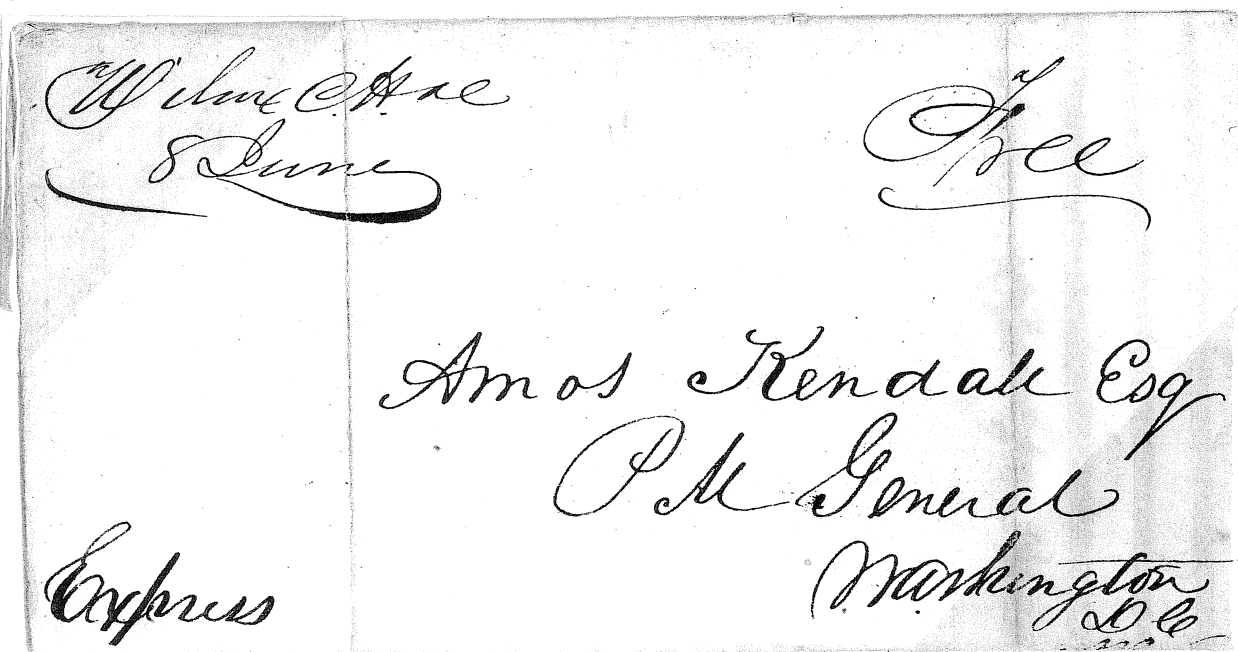 Wilcox C.H. Ale
8 June
Free
Amos Kendall Esq
P M General
Washington
D C
Express